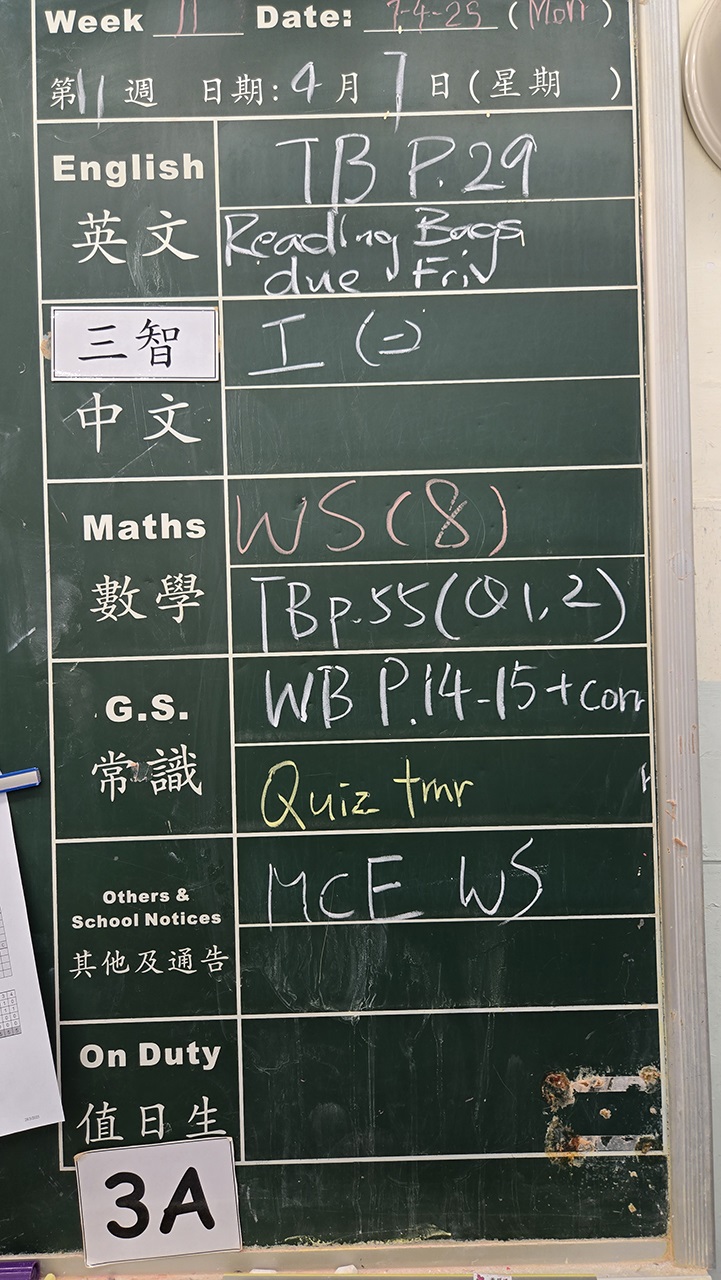 Week 11 Date: 7-4-25 (Mon)
第11週 日期:4月7日(星期 )
English TB P.29
英文 Reading Bags
due Fri
三智 工(二)
中文
Maths WS(8)
數學 TB p.55(Q1,2)
G.S. WB P.14-15+corr
常識 Quiz tmr
Others &
School Notices MCE WS
其他及通告
On Duty
值日生
3A